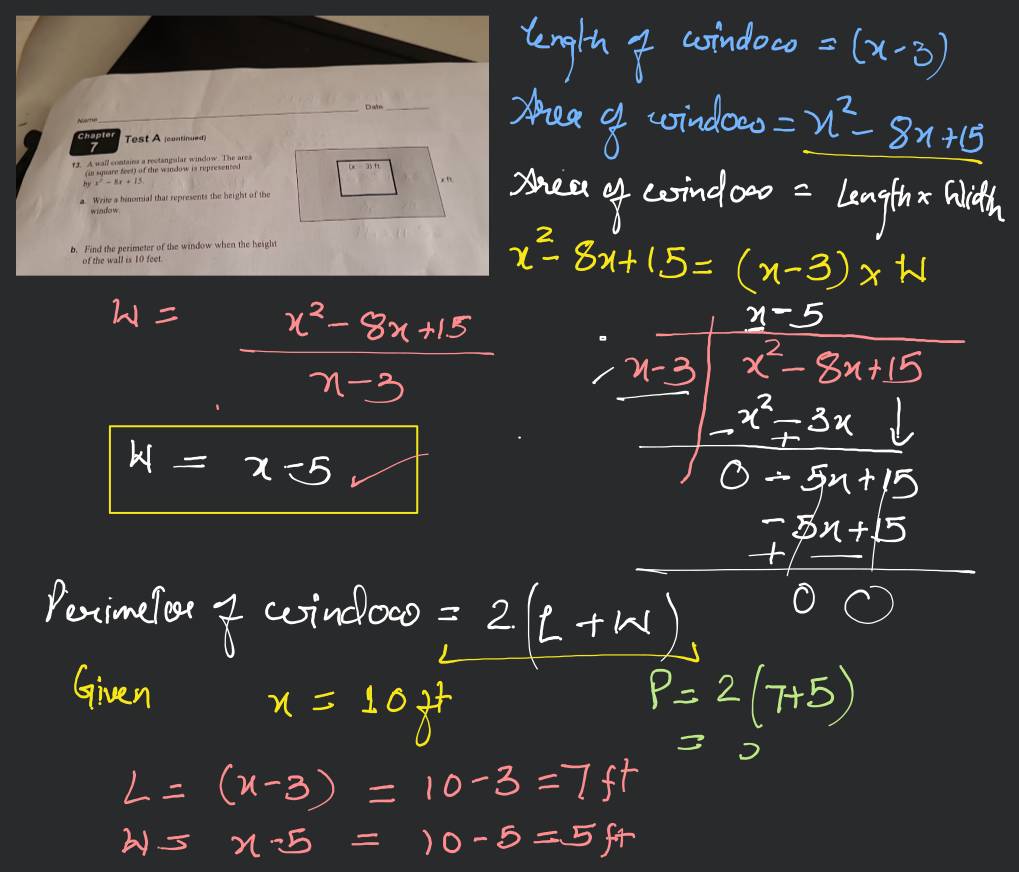 Name
Date
Chapter 7
Test A (continued)
13. A wall contains a rectangular window. The area
(in square feet) of the window is represented
by x² − 8x + 15.
a. Write a binomial that represents the height of the
window.
(x − 3) ft
x ft
b. Find the perimeter of the window when the height
of the wall is 10 feet.
Length of window = (x-3)
Area of window = x² - 8x+15
Area of window = Length x Width
x² - 8x+15 = (x-3) x W
W = x² - 8x+15
x-3
W = x-5
x-5
x-3 x² - 8x+15
- x² - 3x ↓
+
0 - 5x+15
- 5x+15
+
0 0
Perimeter of window = 2(L+W)
Given x = 10 ft
P = 2(7+5)
=
L = (x-3) = 10-3 = 7 ft
W = x-5 = 10-5 = 5 ft